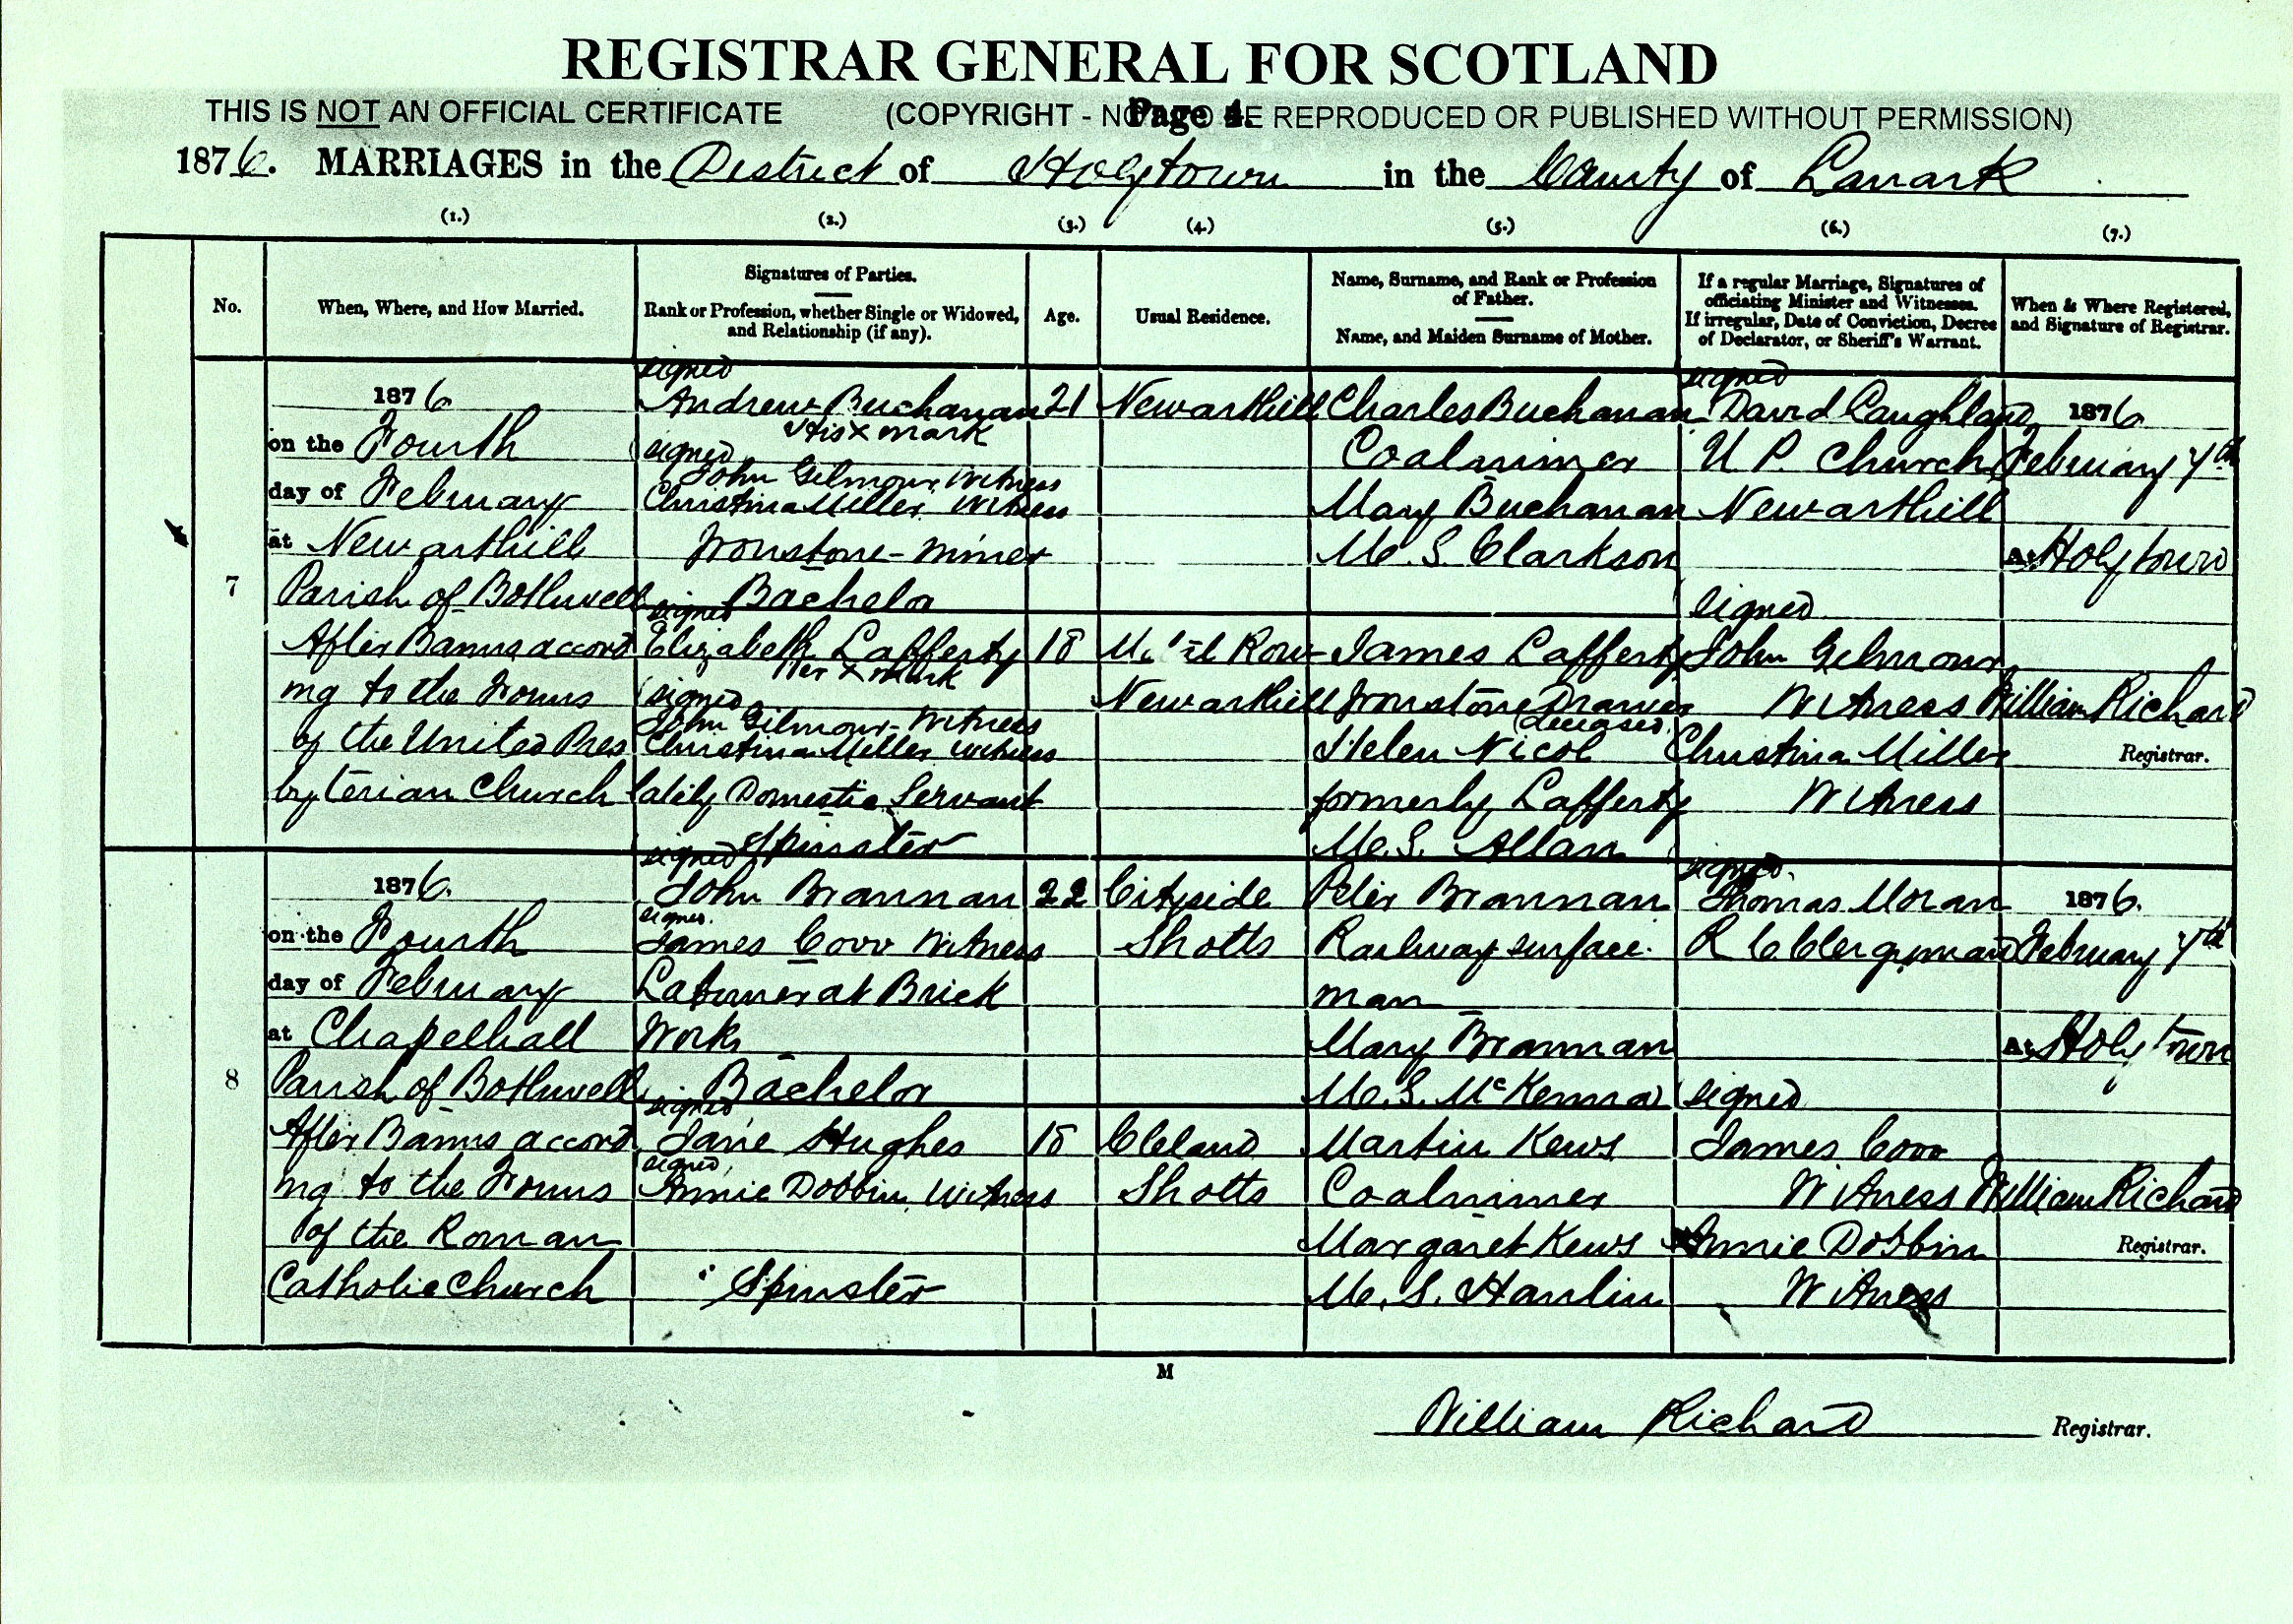 REGISTRAR GENERAL FOR SCOTLAND
THIS IS NOT AN OFFICIAL CERTIFICATE (COPYRIGHT - NOT TO BE REPRODUCED OR PUBLISHED WITHOUT PERMISSION)
Page 4.
1876. MARRIAGES in the District of Holytown in the County of Lanark
(1.) (2.) (3.) (4.) (5.) (6.) (7.)
No.
When, Where, and How Married.
Signatures of Parties.
Rank or Profession, whether Single or Widowed,
and Relationship (if any).
Age.
Usual Residence.
Name, Surname, and Rank or Profession
of Father.
Name, and Maiden Surname of Mother.
If a regular Marriage, Signatures of
officiating Minister and Witnesses.
If irregular, Date of Conviction, Decree
of Declarator, or Sheriff's Warrant.
When & Where Registered,
and Signature of Registrar.
7
1876
on the Fourth
day of February
at Newarthill
Parish of Bothwell
After Banns accord
ing to the Forms
of the United Pres
byterian Church
signed
Andrew Buchanan
His x mark
signed
John Gilmour, Witness
Christina Miller Witness
Ironstone-miner
Bachelor
signed
Elizabeth Lafferty
Her x mark
signed
John Gilmour-Witness
Christina Miller Witness
lately Domestic Servant
Spinster
21
18
Newarthill
Row
Newarthill
Charles Buchanan
Coalminer
Mary Buchanan
M.S. Clarkson
James Lafferty
Ironstone Drawer
(deceased)
Helen Nicol
formerly Lafferty
M.S. Allan
signed
David Laughland
U.P. Church
Newarthill
signed
John Gilmour
Witness
Christina Miller
Witness
1876
February 7th
At Holytown
William Richard
Registrar.
8
1876.
on the Fourth
day of February
at Chapelhall
Parish of Bothwell
After Banns accord
ing to the Forms
of the Roman
Catholic Church
signed
John Brannan
signed.
James Witness
Labourer at Brick
Work
Bachelor
signed
Jane Hughes
signed,
Annie Dobbin, Witness
Spinster
22
18
Cityside
Shotts
Cleland
Shotts
Peter Brannan
Railway surface-
man
Mary Brannan
M.S. McKenna
Martin Kews
Coalminer
Margaret Kews
M.S. Hanlin
signed.
Thomas Moran
R C Clergyman
signed
James
Witness
Annie Dobbin
Witness
1876.
February 7th
At Holytown
William Richard
Registrar.
M
William Richard Registrar.